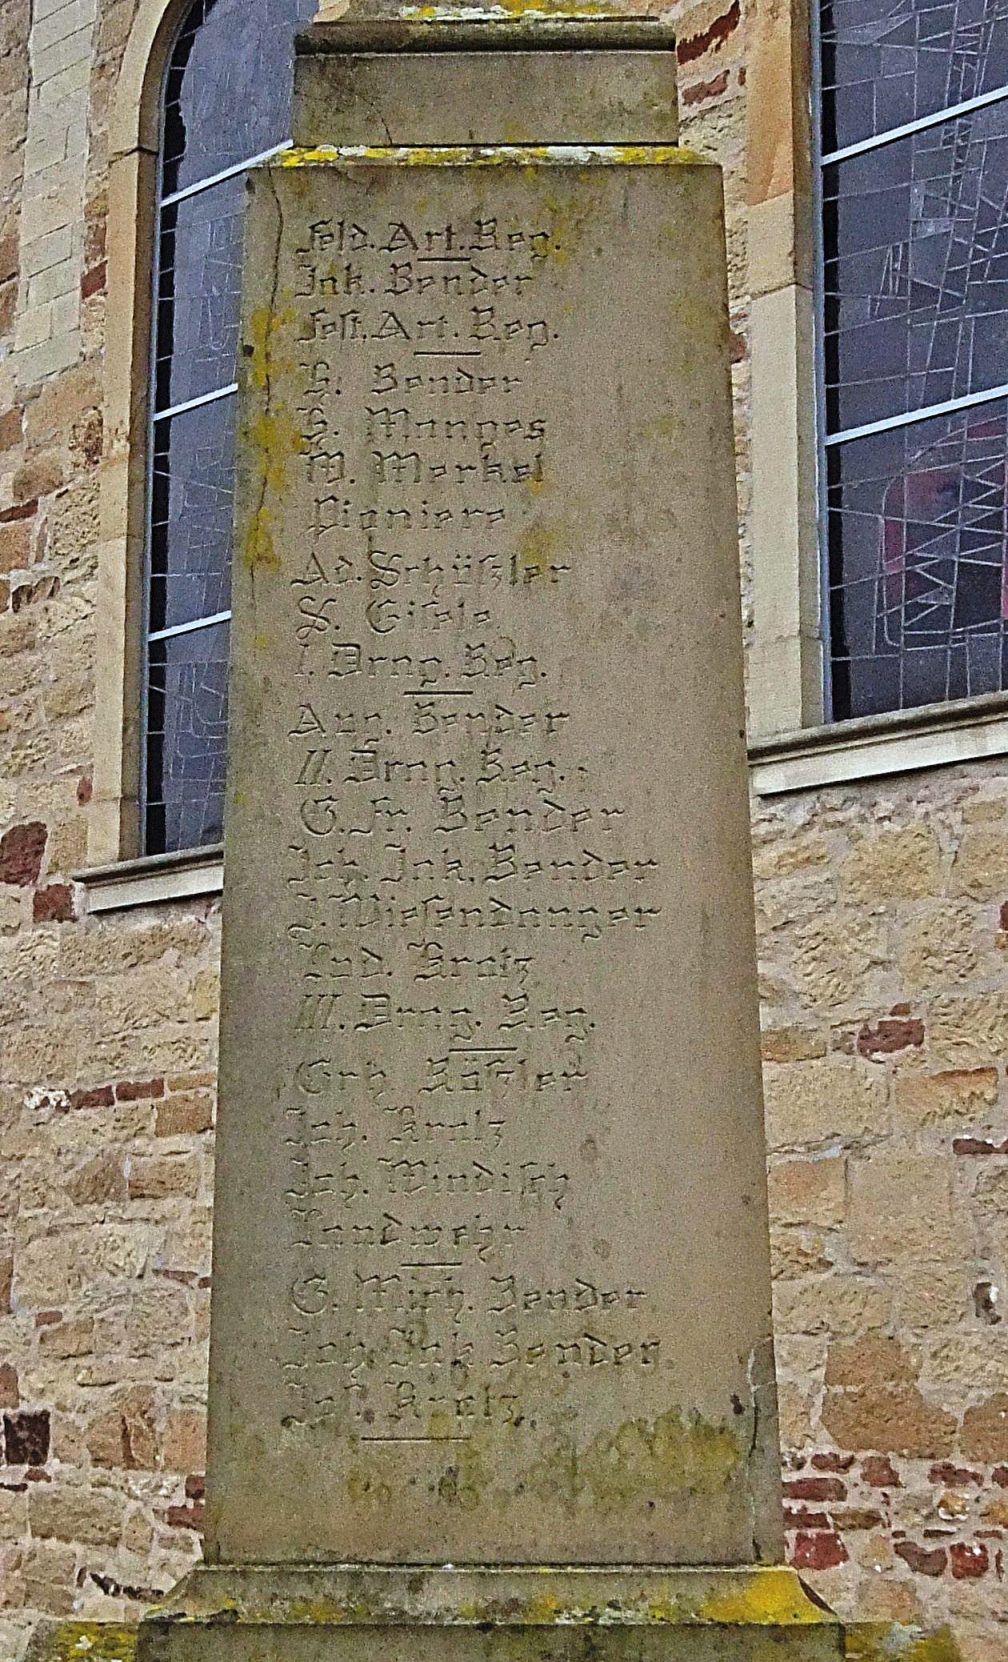 Feld. Art. Reg.
Jak. Bender
Fest. Art. Reg.
H. Bender
H. Manges
W. Merkel
Pioniere
Ad. Schüßler
S. Gisele
I. Drng. Reg.
Aug. Bender
II. Drng. Reg.
G. Fr. Bender
Joh. Jak. Bender
J. Wiesendanger
Lud. Kratz
III. Drng. Reg.
Grh. Rößler
Joh. Kralz
Joh. Windisch
Landwehr
G. Mich. Bender
Joh. Jak. Bender
Jos. Kretz